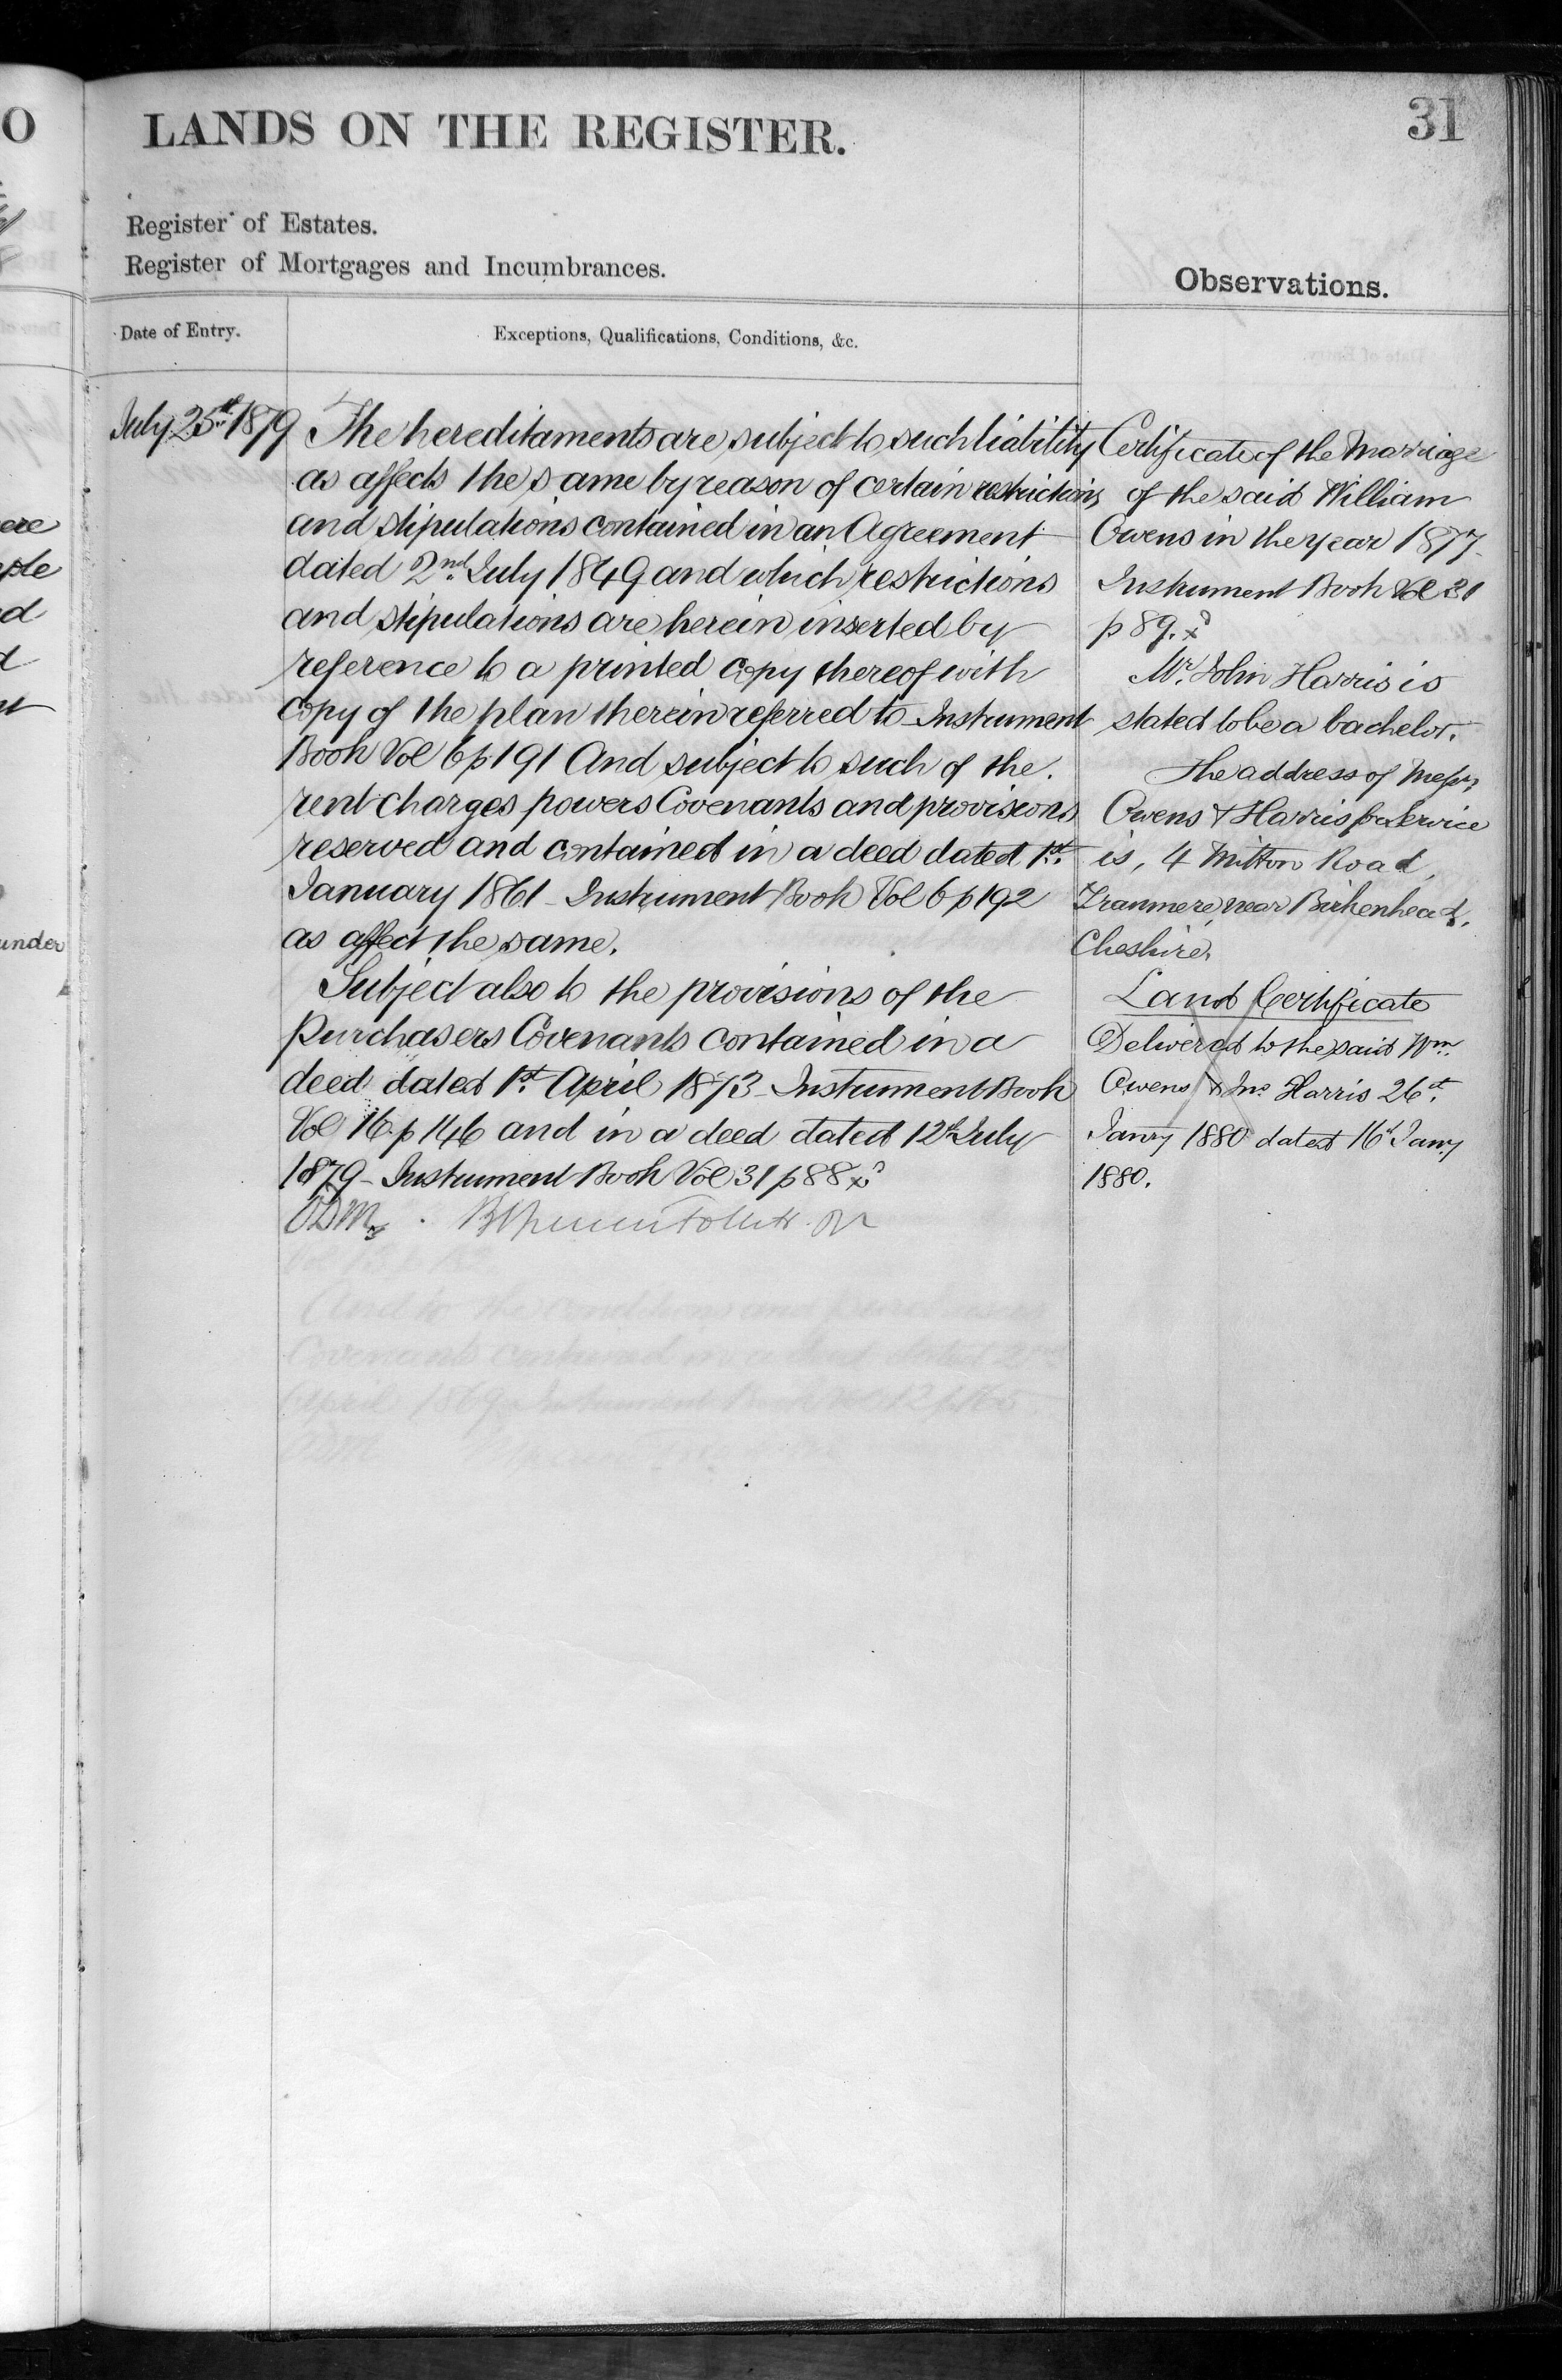 LANDS ON THE REGISTER.
31
Register of Estates.
Register of Mortgages and Incumbrances.
Observations.
Date of Entry.
Exceptions, Qualifications, Conditions, &c.
July 25th 1879
The hereditaments are subject to such liability
as affects the same by reason of certain restrictions
and stipulations contained in an Agreement
dated 2nd July 1849 and which restrictions
and stipulations are herein inserted by
reference to a printed copy thereof with
copy of the plan therein referred to Instrument
Book Vol 6 p 191 And subject to such of the
rent charges powers Covenants and provisions
reserved and contained in a deed dated 1st
January 1861 - Instrument Book Vol 6 p 192
as affect the same.
Subject also to the provisions of the
Purchasers Covenants contained in a
deed dated 1st April 1873 - Instrument Book
Vol 16 p 146 and in a deed dated 12th July
1879 - Instrument Book Vol 31 p 88
Certificate of the Marriage
of the said William
Owens in the year 1877 -
Instrument Book Vol 31
p 89.
Mr. John Harris is
stated to be a bachelor.
The address of Messrs
Owens & Harris for Service
is, 4 Mitton Road,
Tranmere, near Birkenhead,
Cheshire.
Land Certificate
Delivered to the said Wm.
Owens & Jno Harris 26th
Jany 1880 dated 16th Jany
1880.